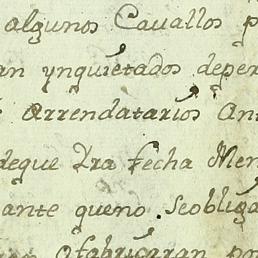 algunos Cauallos p
an ynquietados deper
Arrendatarios An
deque Dra fecha Men
ante queno. Seobliga
ofabricaran po